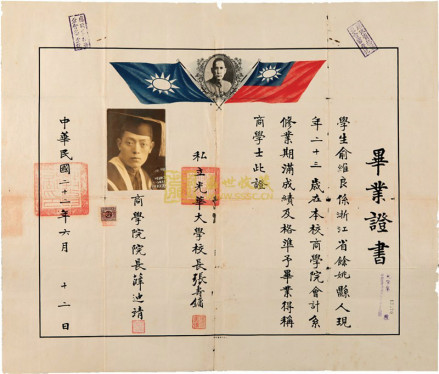 畢業證書
學生俞維良係浙江省餘姚縣人現
年二十三歲在本校商學院會計系
修業期滿成績及格準予畢業得稱
商學士此證
私立光華大學校長張壽鏞
商學院院長薛迪靖
中華民國二十二年六月十二日